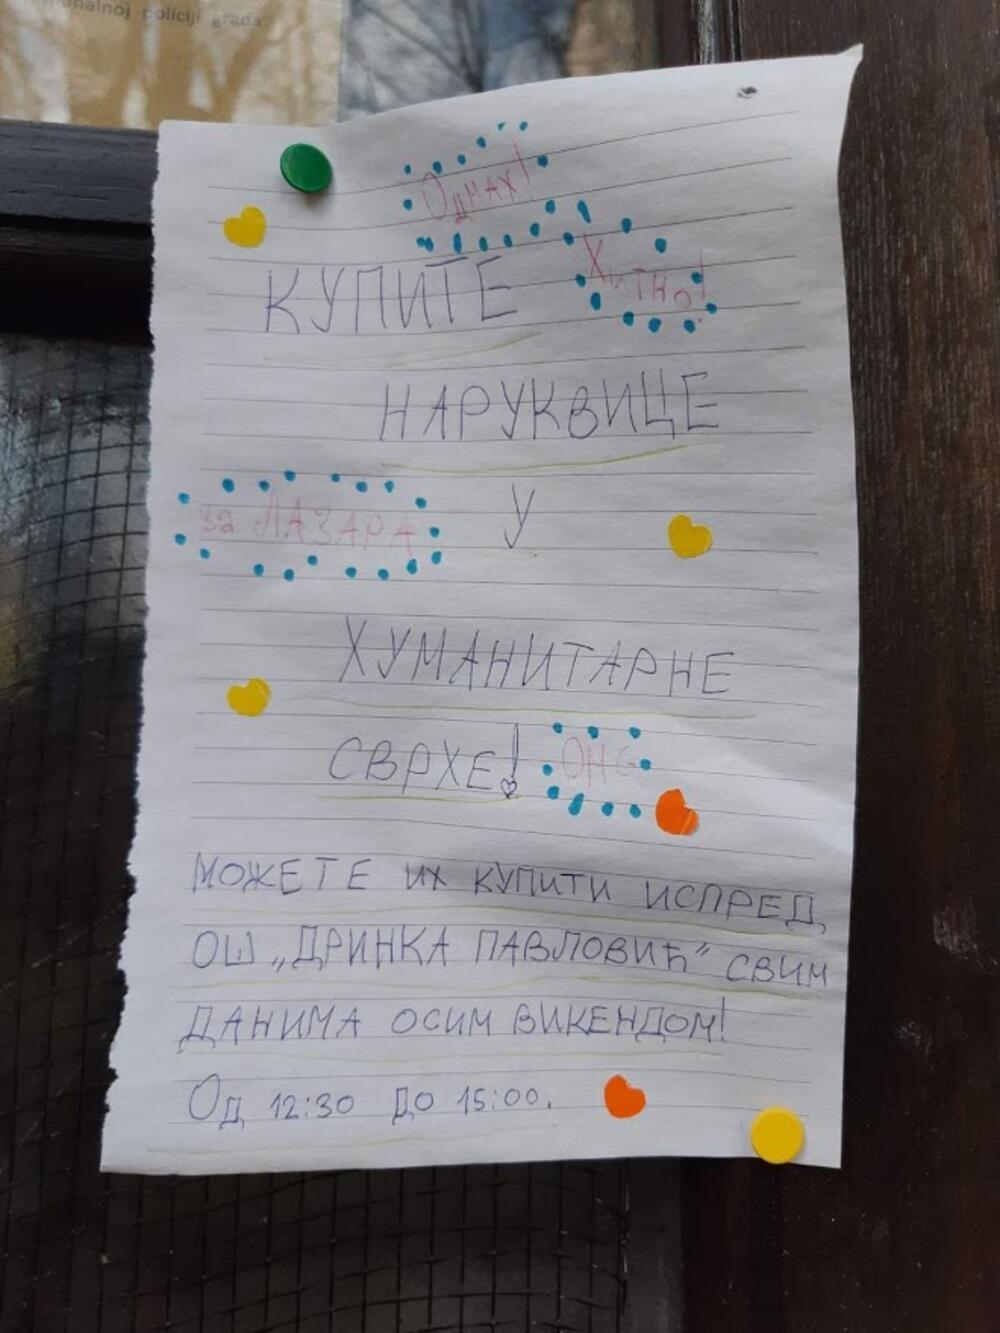 nalnoj policiji grada
Одмах!
КУПИТЕ
Хитно!
НАРУКВИЦЕ
за ЛАЗАРА
У
ХУМАНИТАРНЕ
СВРХЕ!
OMG
МОЖЕТЕ ИХ КУПИТИ ИСПРЕД
ОШ „ДРИНКА ПАВЛОВИЋ“ СВИМ
ДАНИМА ОСИМ ВИКЕНДОМ!
Од 12:30 ДО 15:00.